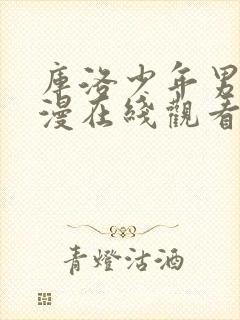 庫洛少年男
漫在綫觀看
青燈沽酒